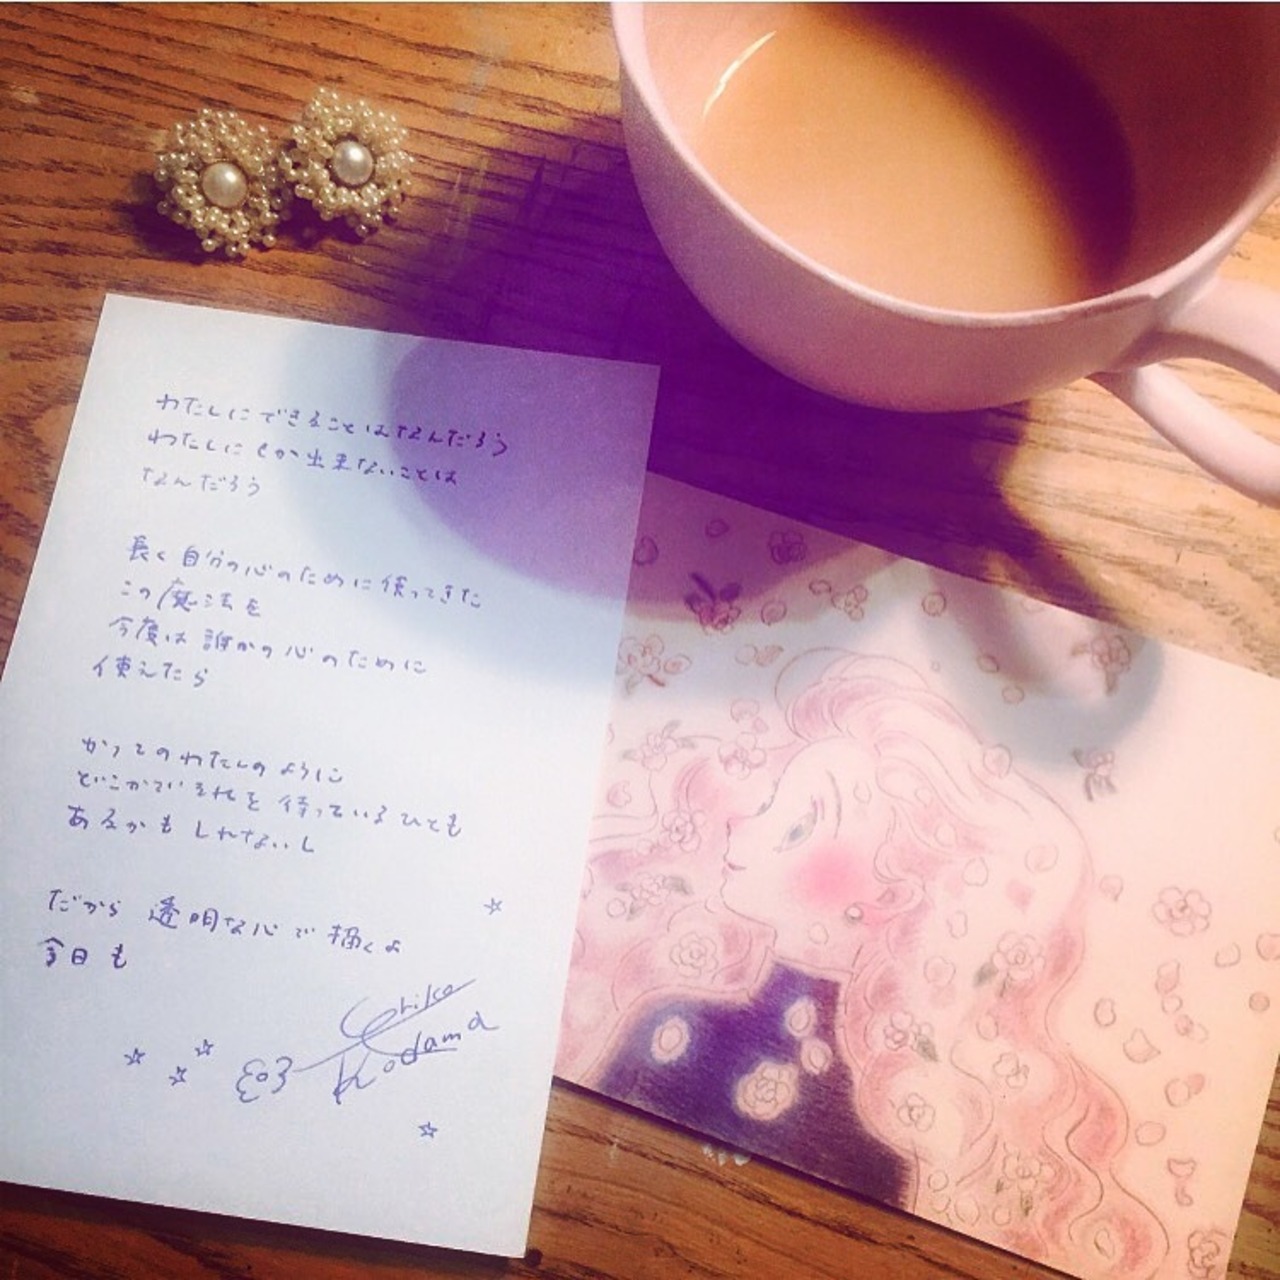 わたしにできることはなんだろう
わたしにしか出来ないことは
なんだろう
長く自分の心のために使ってきた
この魔法を
今度は誰かの心のために
使えたら
かつてのわたしのように
どこかでそれを待っているひとも
あるかもしれないし
だから透明な心で描くよ
今日も
Chiko
Kodama